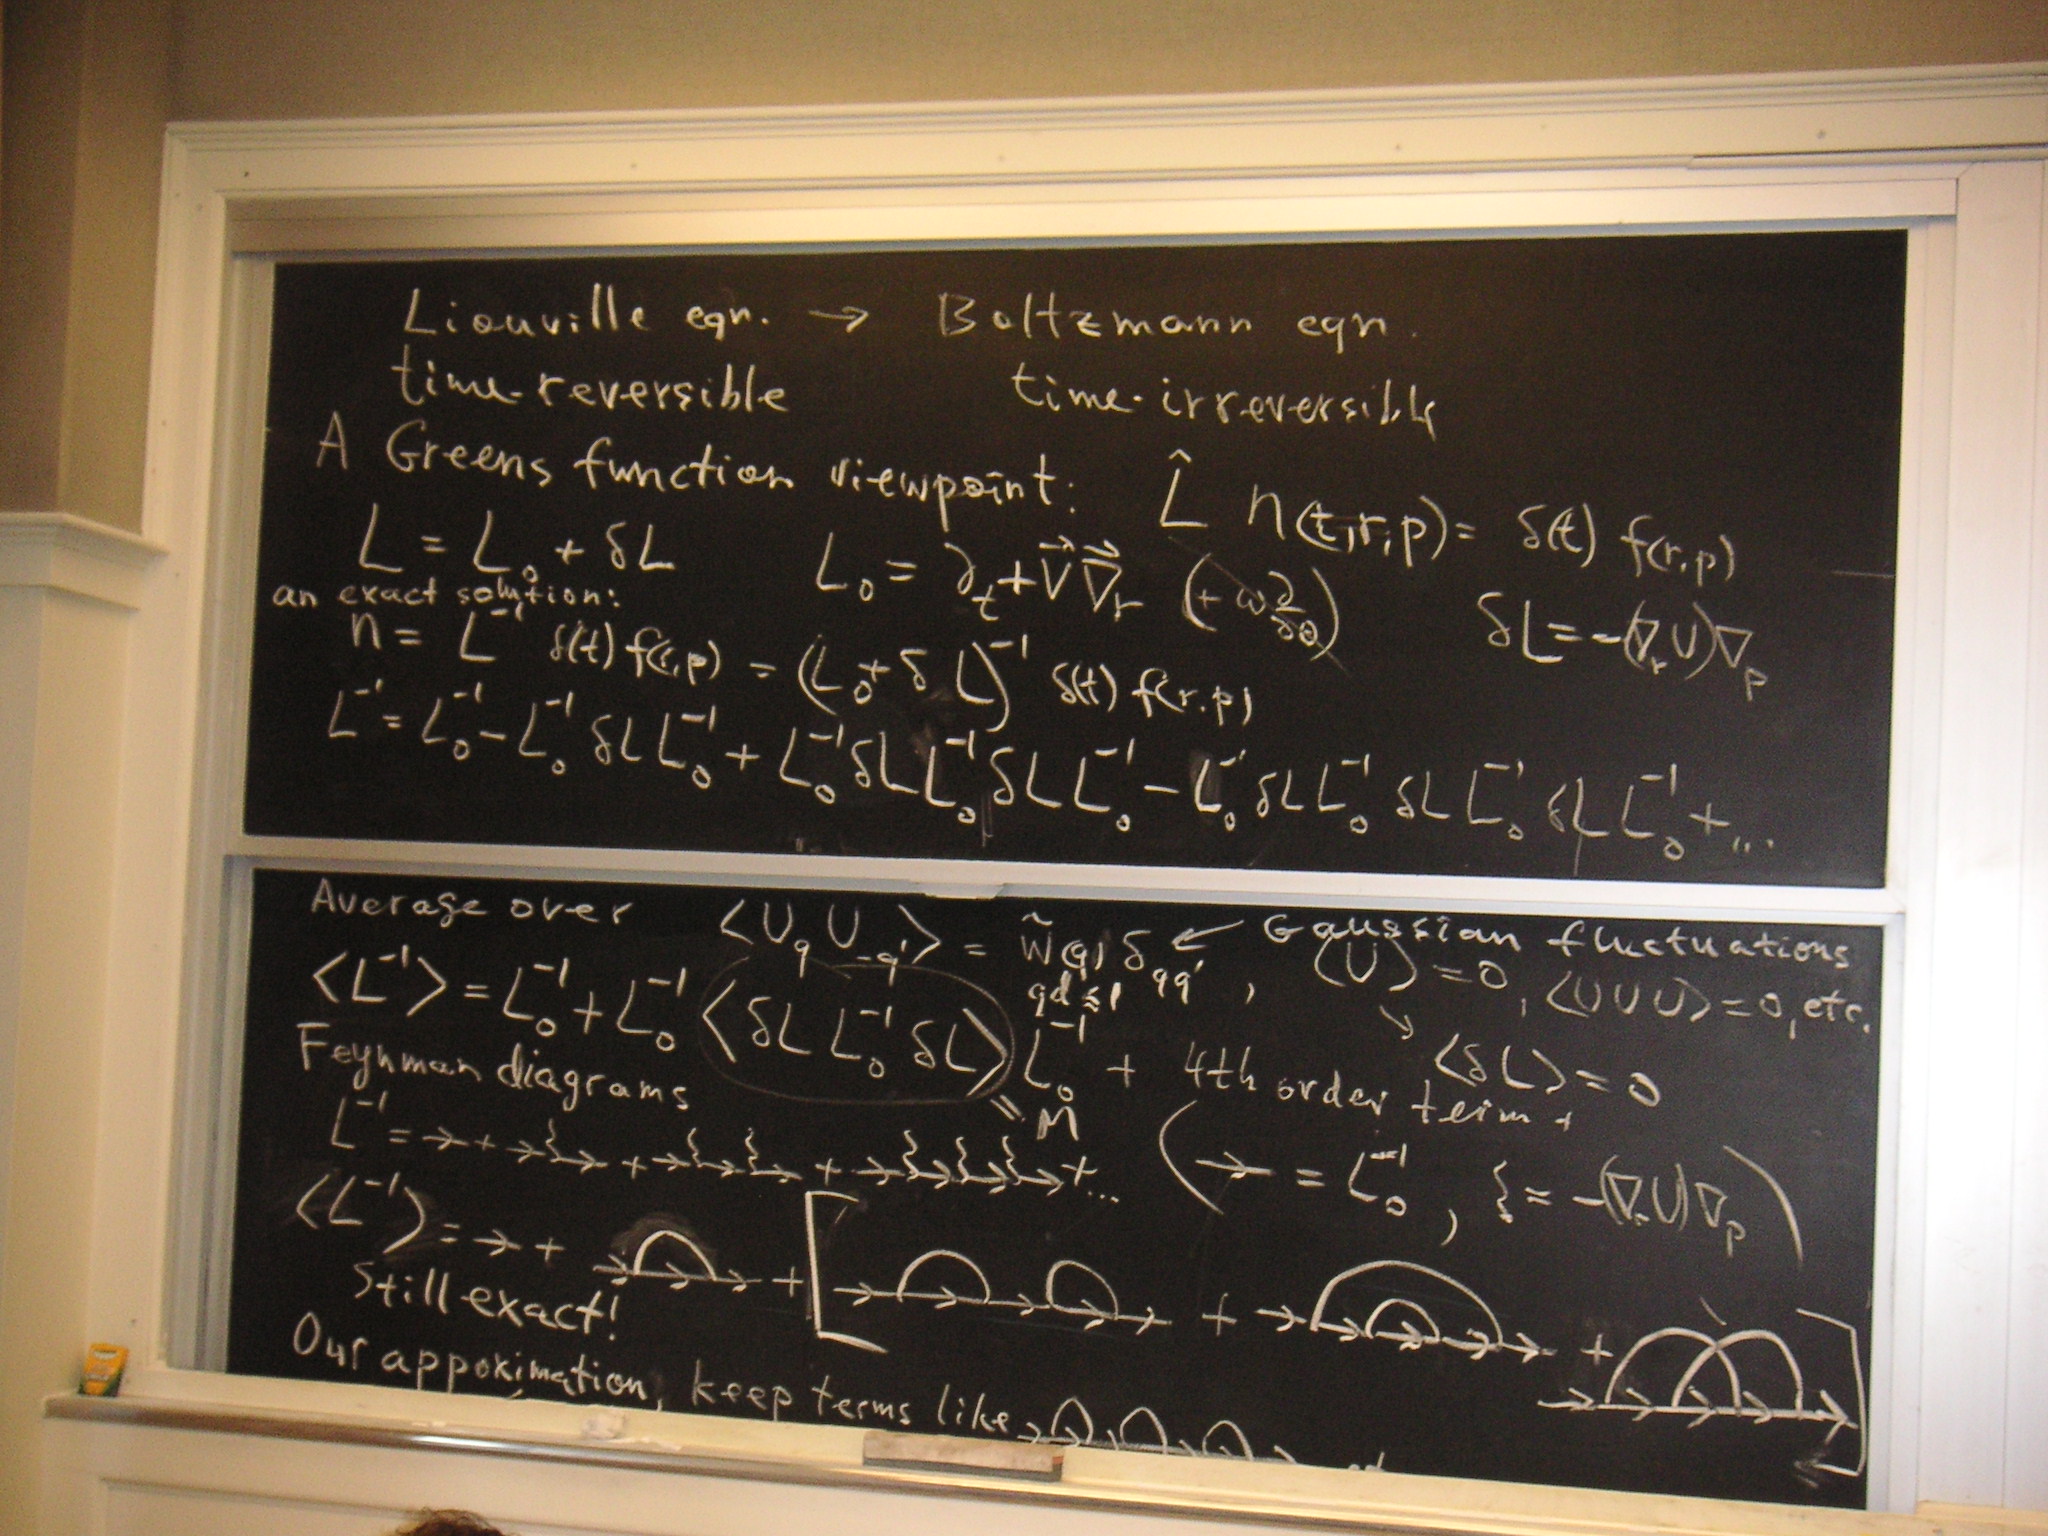 Liouville eqn. → Boltzmann eqn.
time-reversible time-irreversible
A Greens function viewpoint: L̂ n(t,r,p) = δ(t) f(r,p)
L = L₀ + δL L₀ = ∂_t + v⃗ ∇⃗_r (+ ω ∂/∂θ) δL = -(∇_r U)∇_p
an exact solution:
n = L⁻¹ δ(t) f(r,p) = (L₀ + δL)⁻¹ δ(t) f(r,p)
L⁻¹ = L₀⁻¹ - L₀⁻¹ δL L₀⁻¹ + L₀⁻¹ δL L₀⁻¹ δL L₀⁻¹ - L₀⁻¹ δL L₀⁻¹ δL L₀⁻¹ δL L₀⁻¹ + ...
Average over ⟨U_q U_-q'⟩ = W̃(q) δ_qq' ← Gaussian fluctuations
qd ≲ 1 , ⟨U⟩ = 0, ⟨UUU⟩ = 0, etc.
⟨L⁻¹⟩ = L₀⁻¹ + L₀⁻¹ ⟨δL L₀⁻¹ δL⟩ L₀⁻¹ + 4th order term +
↘ ⟨δL⟩ = 0
= M
Feynman diagrams
L⁻¹ = → + →}→ + →}→}→ + →}→}→}→ + ... (→ = L₀⁻¹, } = -(∇_r U)∇_p)
⟨L⁻¹⟩ = → + + [ + + ]
Still exact!
Our appoximation, keep terms like